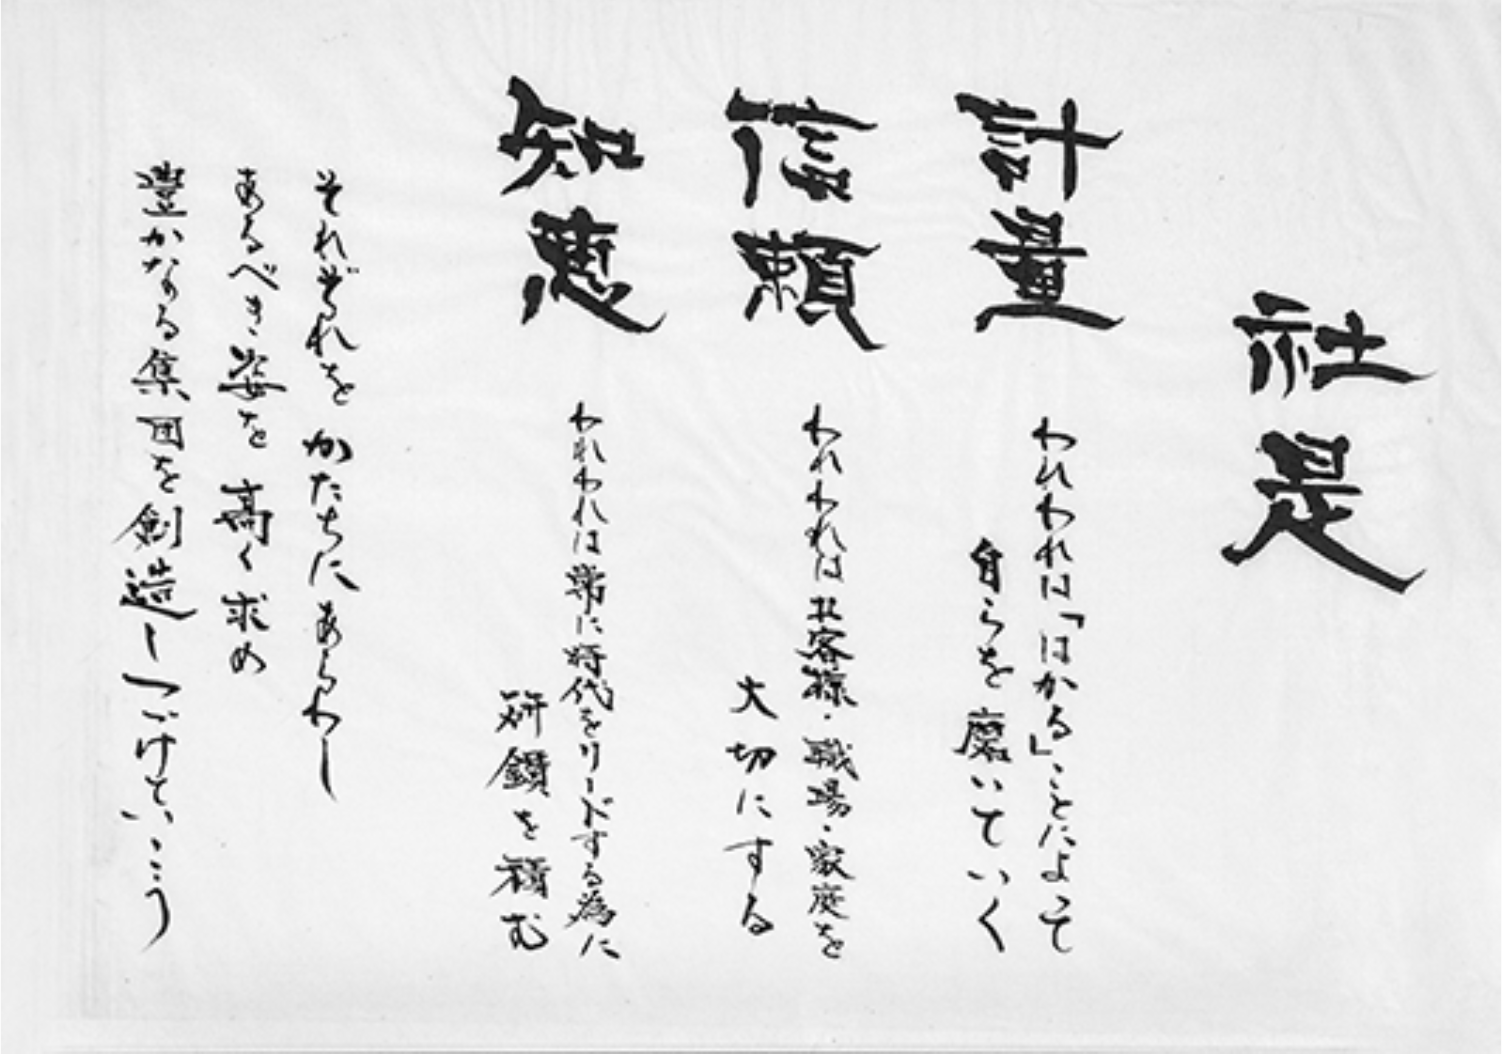 社是
計量
われわれは「はかる」ことによって
自らを磨いていく
信頼
われわれはお客様・職場・家庭を
大切にする
知恵
われわれは常に時代をリードする為に
研鑽を積む
それぞれを かたちにあらわし
あるべき姿を 高く求め
豊かなる集団を創造しつづけていこう